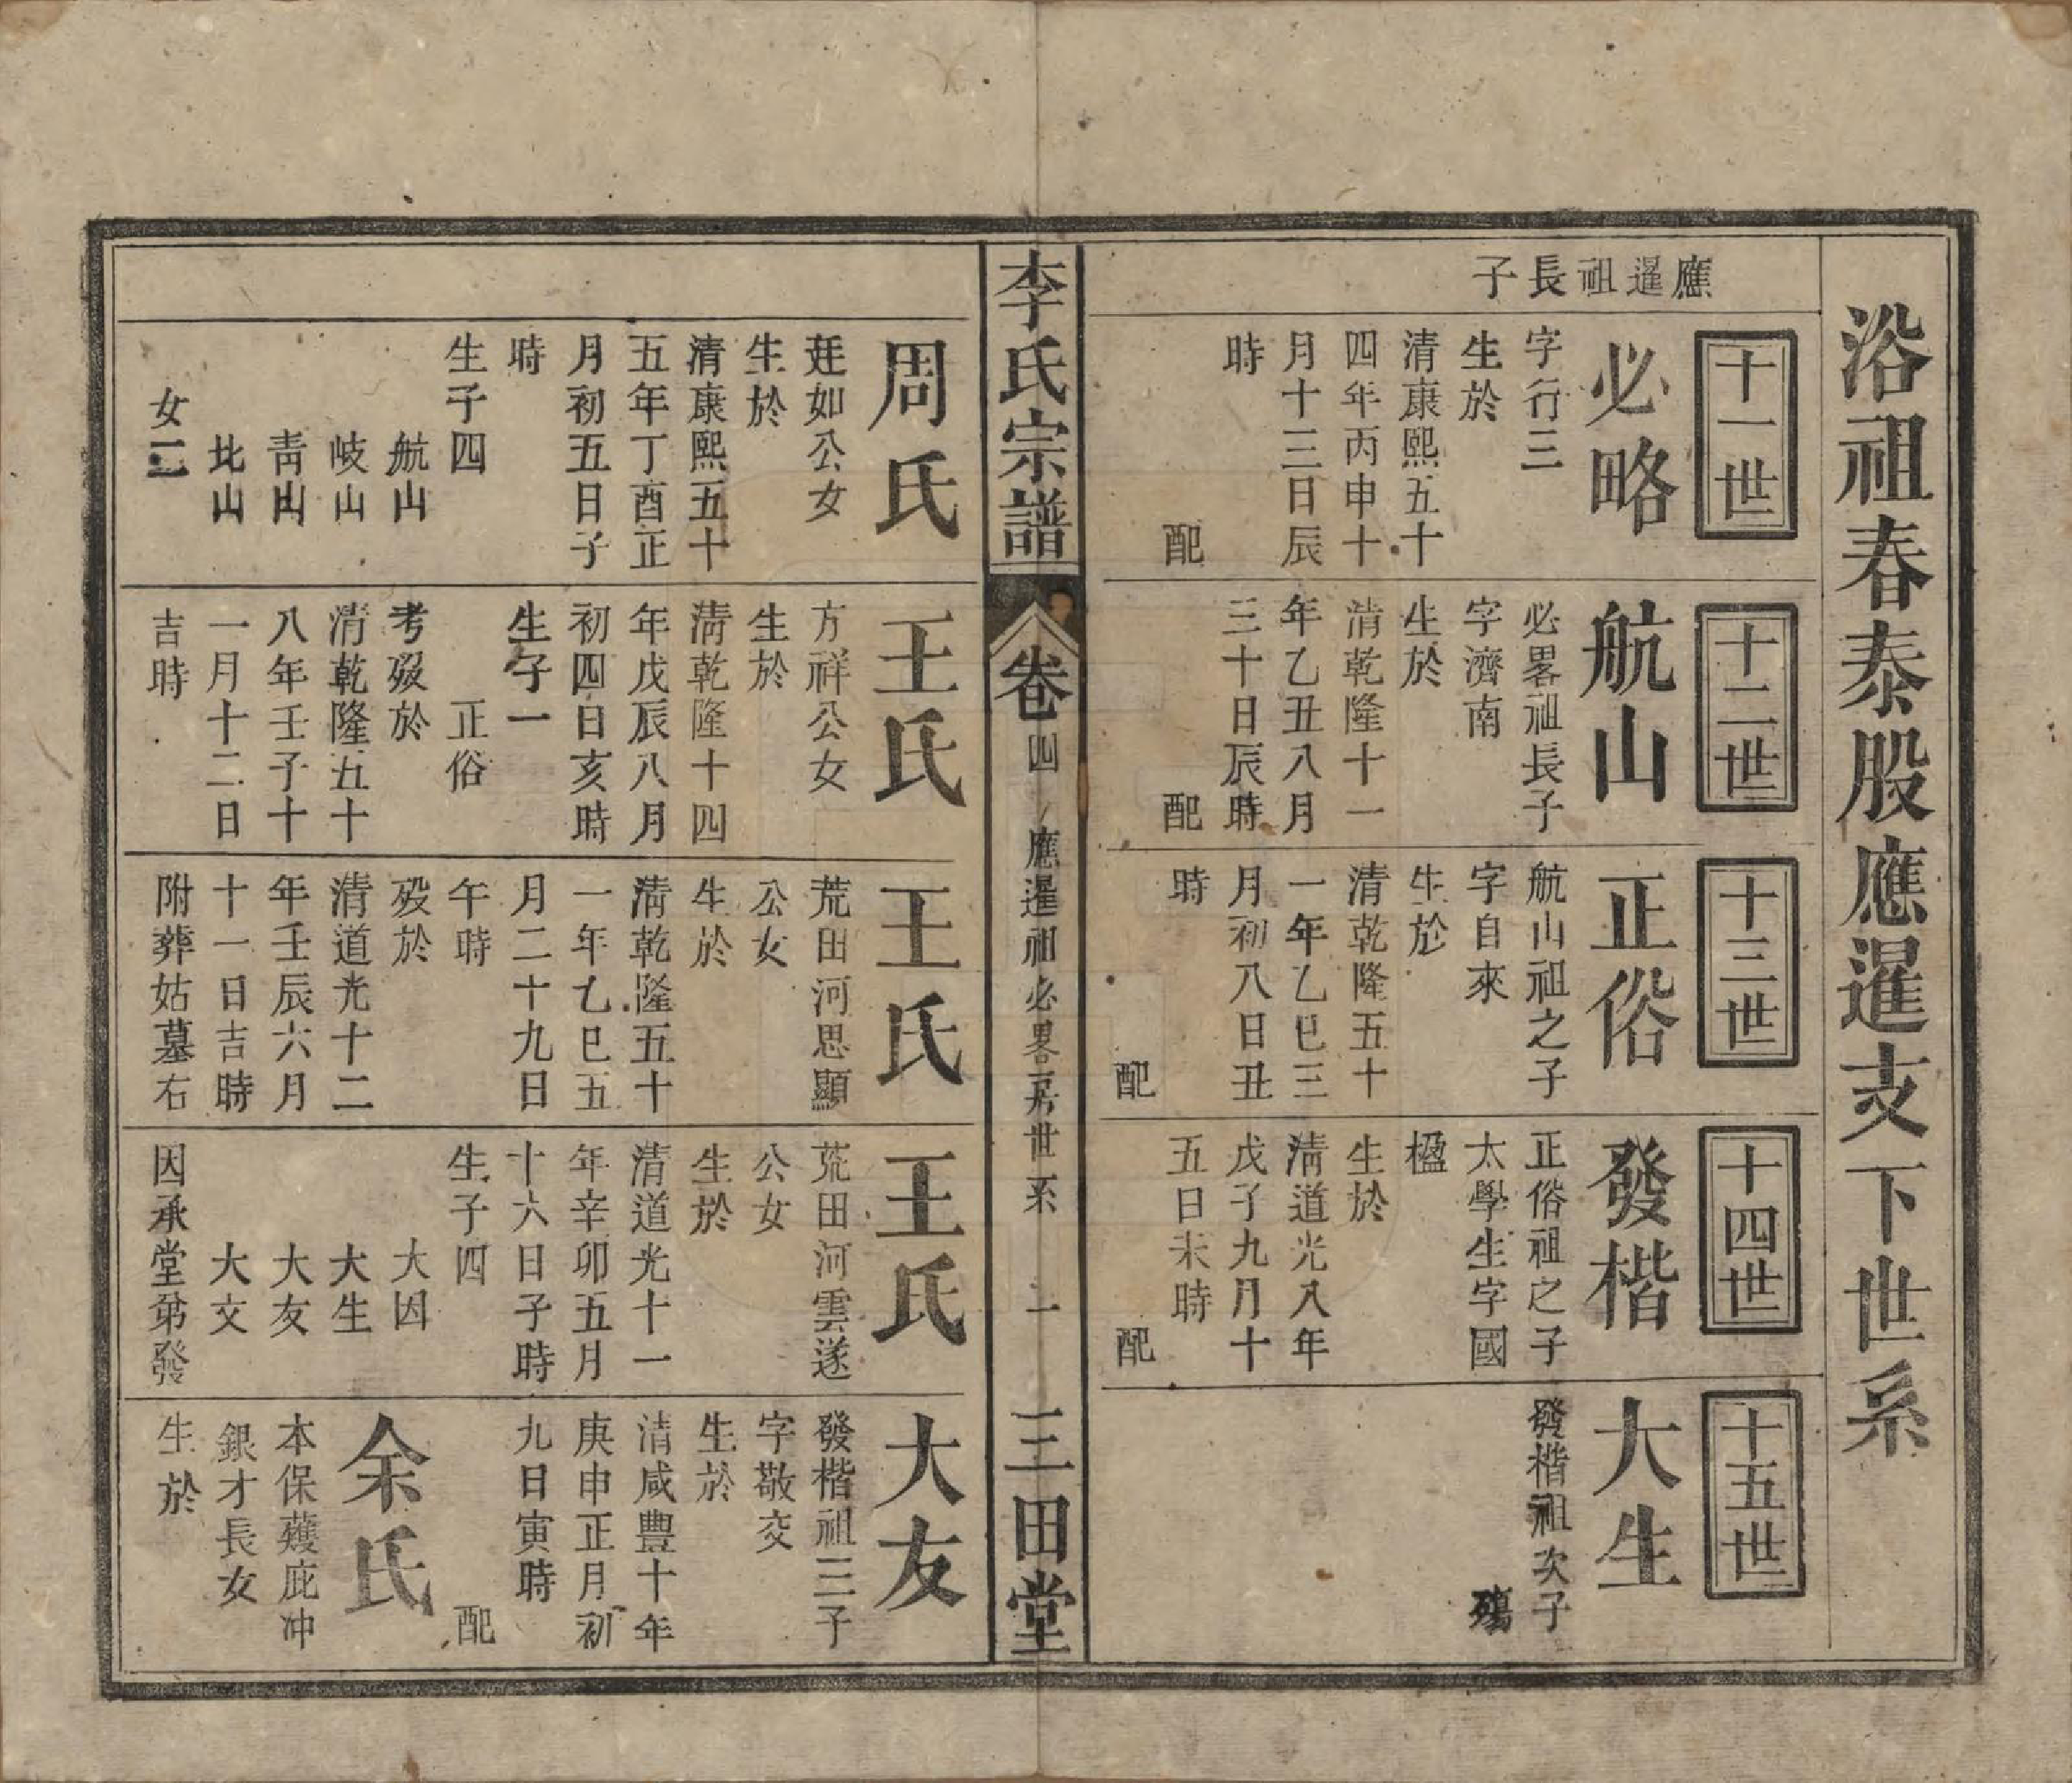 浴祖春泰股應暹支下世系
應暹祖長子
十一世
必略
字行三
生於
清康熙五十
四年丙申十
月十三日辰
時
配
十二世
航山
必畧祖長子
字濟南
生於
清乾隆十一
年乙丑八月
三十日辰時
配
十三世
正俗
航山祖之子
字自來
生於
清乾隆五十
一年乙巳三
月初八日丑
時
配
十四世
發楷
正俗祖之子
太學生字國
楹
生於
清道光八年
戊子九月十
五日未時
配
十五世
大生
發楷祖次子
殤
李氏宗譜
卷四
應暹祖必畧房世系
一
三田堂
周氏
廷如公女
生於
清康熙五十
五年丁酉正
月初五日子
時
生子四
航山
岐山
靑山
北山
女二
王氏
方祥公女
生於
淸乾隆十四
年戊辰八月
初四日亥時
生子一
正俗
考歿於
清乾隆五十
八年壬子十
一月十二日
吉時
王氏
荒田河思顯
公女
生於
清乾隆五十
一年乙巳五
月二十九日
午時
歿於
清道光十二
年壬辰六月
十一日吉時
附葬姑墓右
王氏
荒田河雲遂
公女
生於
清道光十一
年辛卯五月
十六日子時
生子四
大因
大生
大友
大文
因承堂弟發
大友
發楷祖三子
字敬交
生於
清咸豐十年
庚申正月初
九日寅時
配
余氏
本保薤庇冲
銀才長女
生於